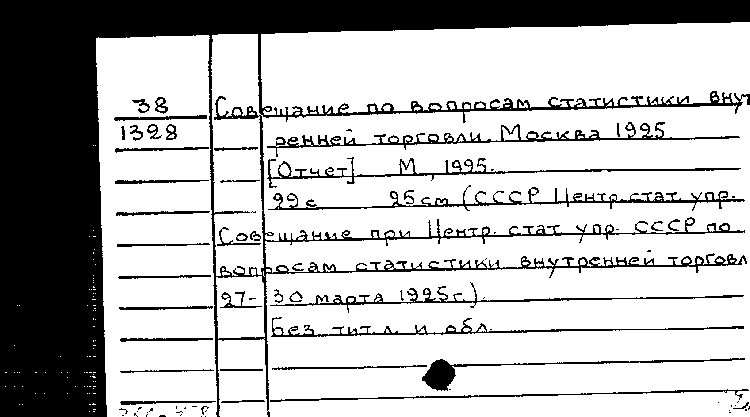 38 Совещание по вопросам статистики внут
1328 ренней торговли. Москва 1925.
[Отчет] М., 1925.
29 с 25 см (СССР Центр. стат. упр.
Совещание при Центр. стат упр. СССР по
вопросам статистики внутренней торговл
27- 30 марта 1925 г.).
Без тит. л. и обл.